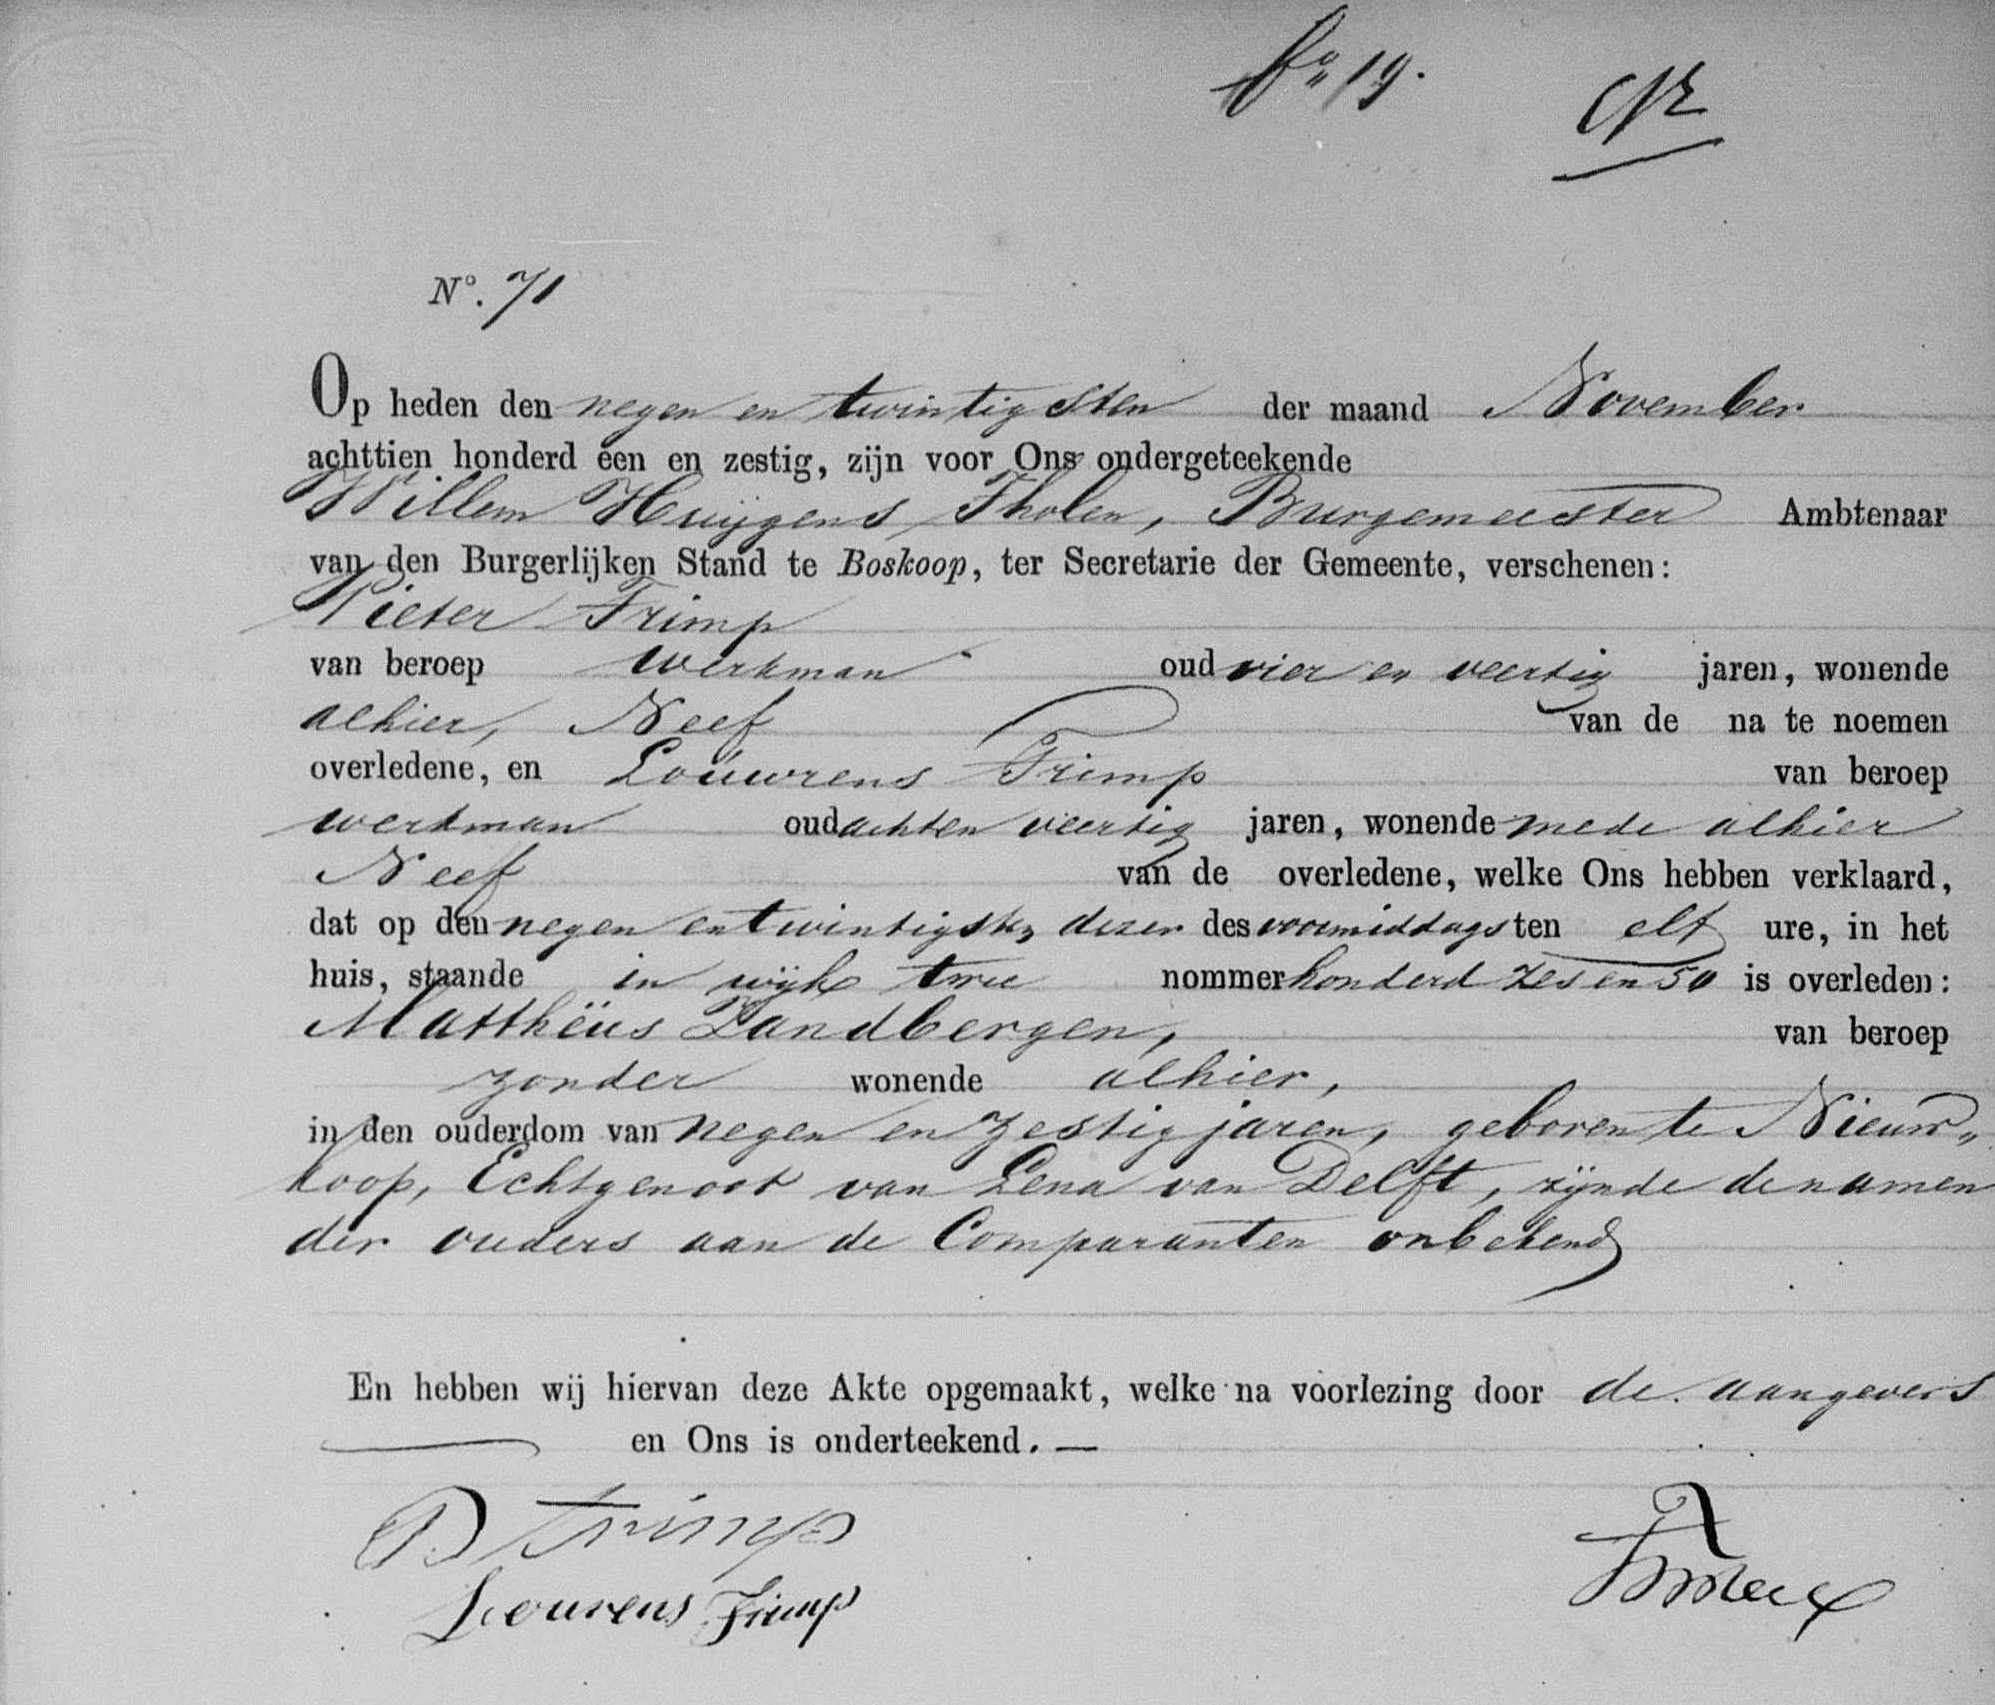 fo 19.
No. 71
Op heden den negen en twintigsten der maand November
achttien honderd een en zestig, zijn voor Ons ondergeteekende
Willem Huijgens Tholen, Burgemeester Ambtenaar
van den Burgerlijken Stand te Boskoop, ter Secretarie der Gemeente, verschenen:
Pieter Trimp
van beroep werkman oud vier en veertig jaren, wonende
alhier, Neef van de na te noemen
overledene, en Louwrens Trimp van beroep
werkman oud achten veertig jaren, wonende mede alhier
Neef van de overledene, welke Ons hebben verklaard,
dat op den negen entwintigsten dezer des voormiddags ten elf ure, in het
huis, staande in wijk twee nommer honderd zes en 50 is overleden:
Matthëus Zandbergen, van beroep
zonder wonende alhier,
in den ouderdom van negen en zestig jaren, geboren te Nieuw„
koop, Echtgenoot van Lena van Delft, zijnde de namen
der ouders aan de Comparanten onbekend
En hebben wij hiervan deze Akte opgemaakt, welke na voorlezing door de aangevers
en Ons is onderteekend. —
P Trimp
Lourens Trimp
Tholen